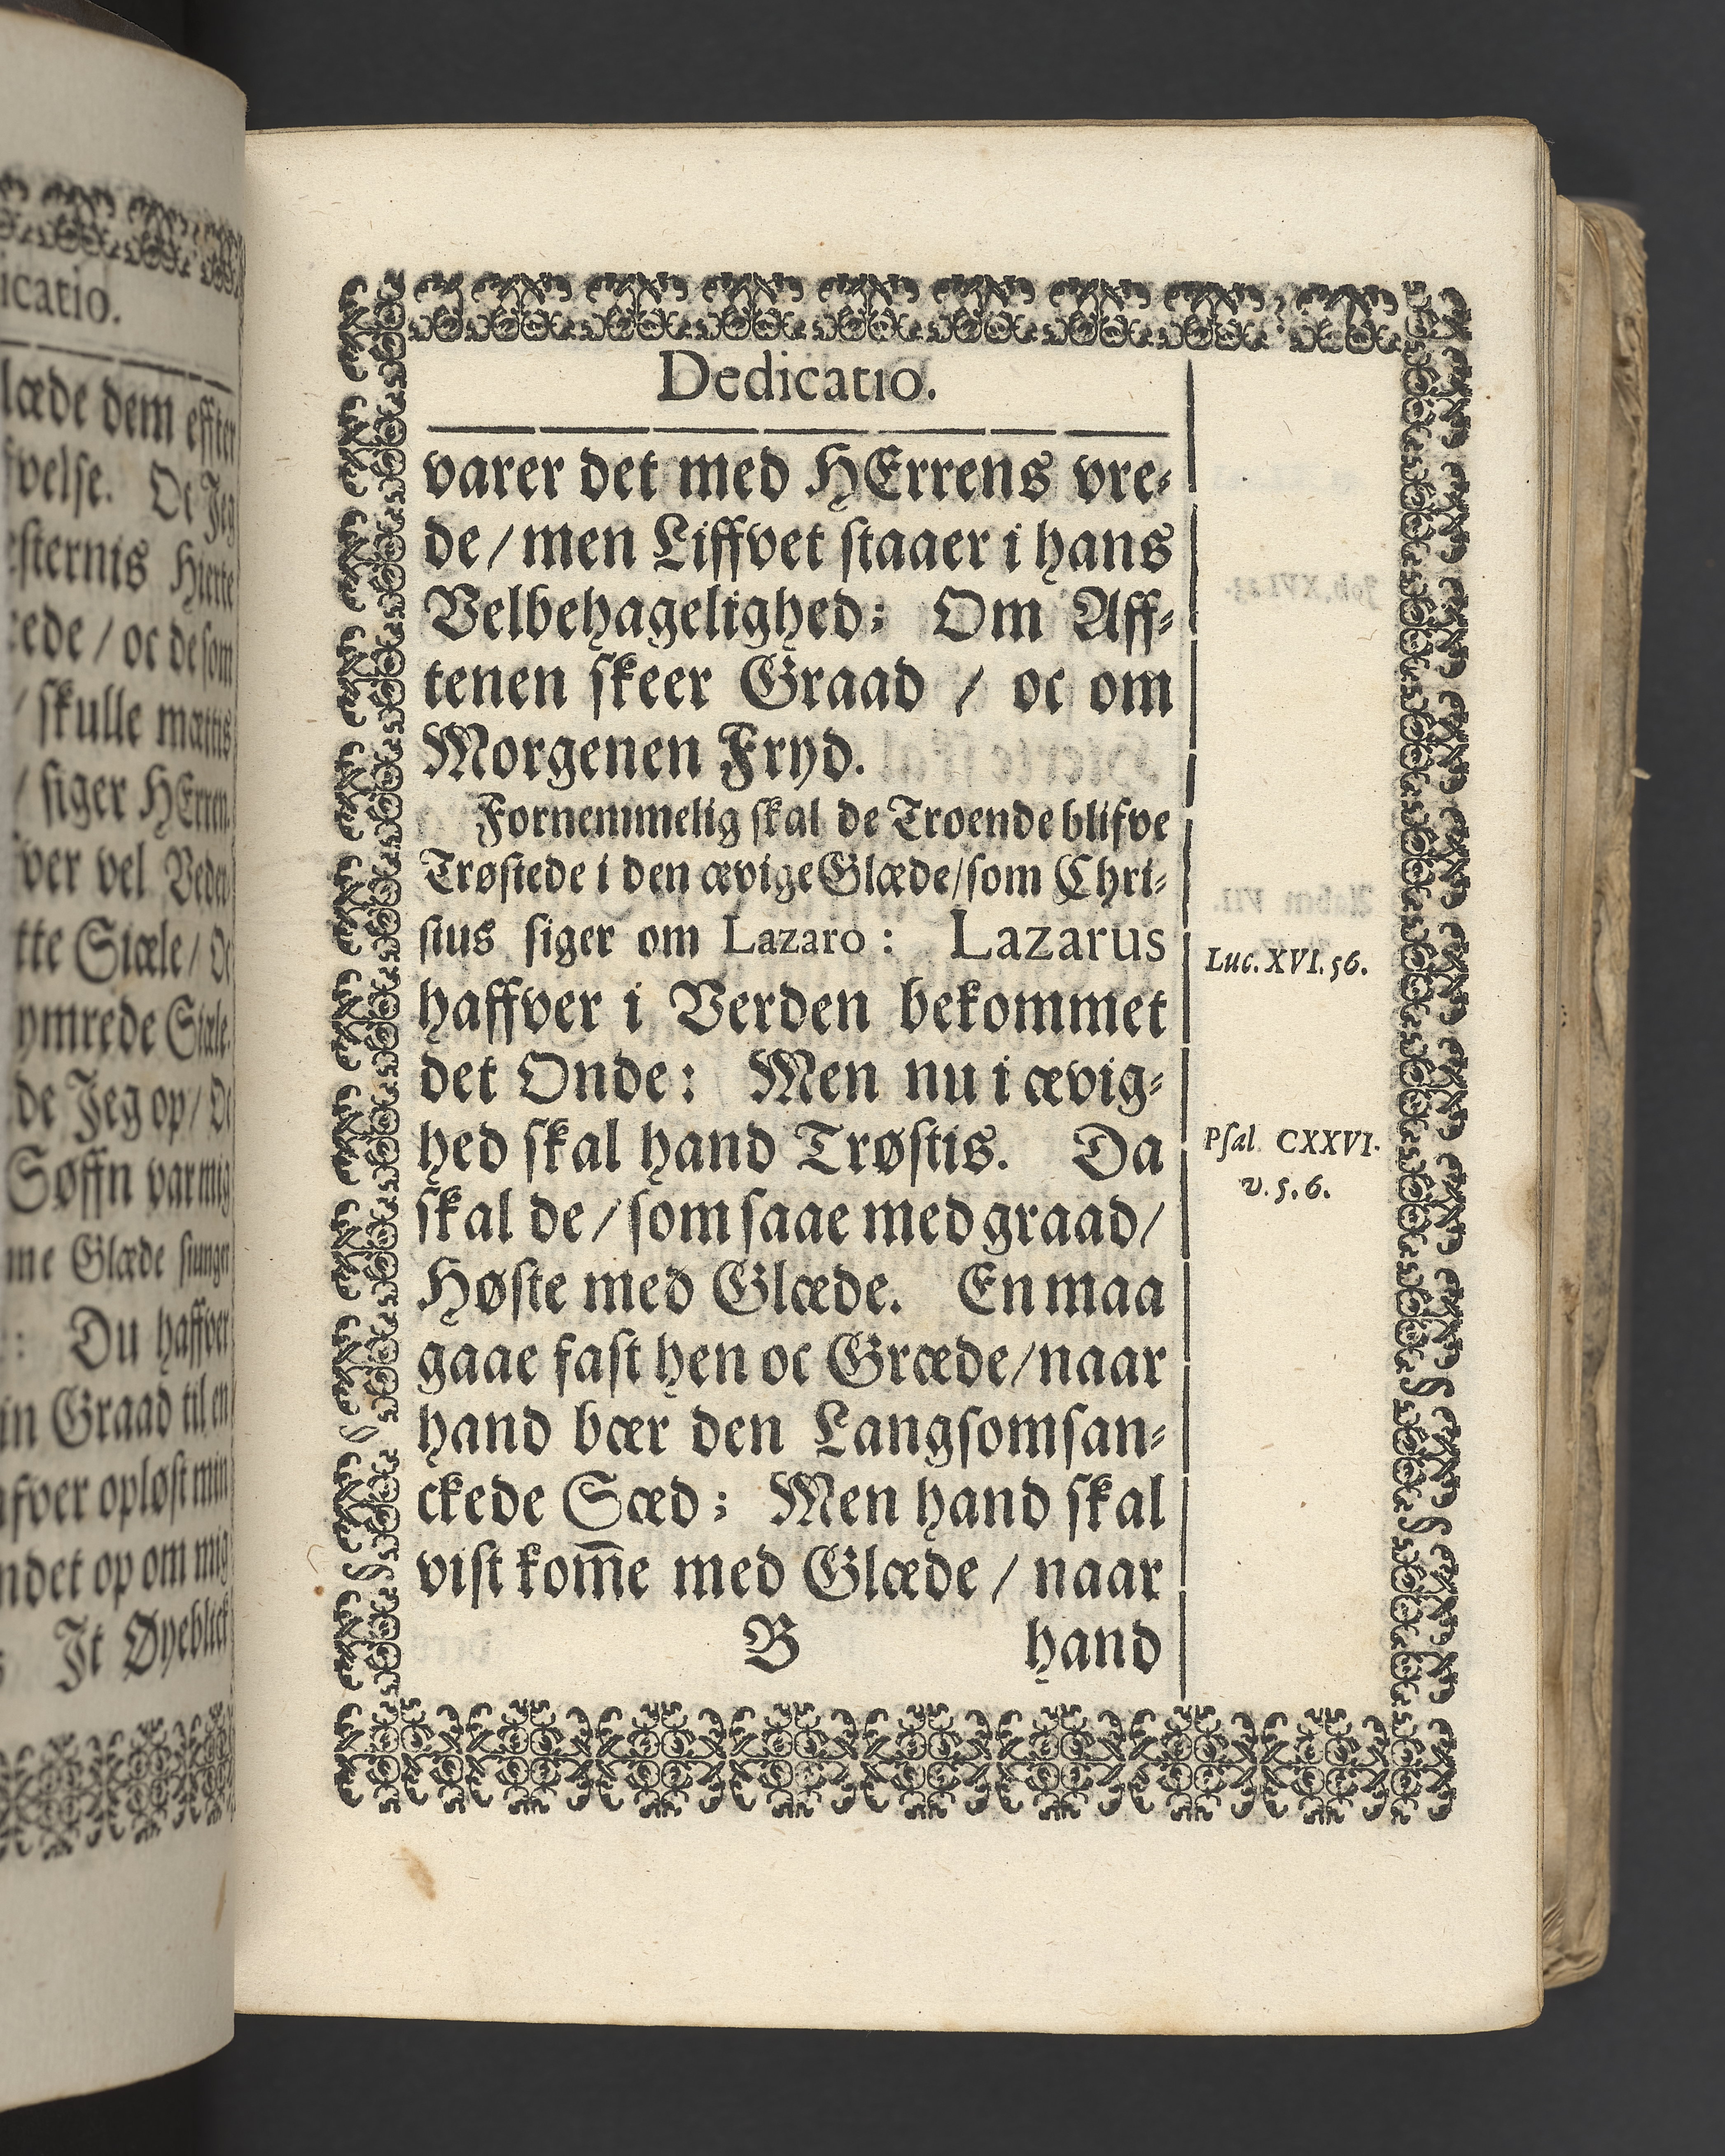 icatio.
læde dem effter
fvelse. Oc Jeg
esternis Hierte
rede / oc de som
/ skulle mættis
/ siger HErren.
ver vel Veder
tte Siæle / Oc
ymrede Siæle.
de Jeg op / Oc
Søffn var mig
me Glæde siunger
: Du haffver
in Graad til en
afver opløst min
ndet op om mig
Jt Øyeblick
Dedicatio.
varer det med HErrens vre⸗
de / men Liffvet staaer i hans
Velbehagelighed; Om Aff⸗
tenen skeer Graad / oc om
Morgenen Fryd.
Fornemmelig skal de Troende blifve
Trøstede i den ævige Glæde / som Chri⸗
stus siger om Lazaro: Lazarus
Luc. XVI. 56.
haffver i Verden bekommet
det Onde: Men nu i ævig⸗
hed skal hand Trøstis. Da
Psal. CXXVI.
v. 5. 6.
skal de / som saae med graad /
Høste med Glæde. En maa
gaae fast hen oc Græde / naar
hand bær den Langsomsan⸗
ckede Sæd; Men hand skal
vist kom̅e med Glæde / naar
B hand